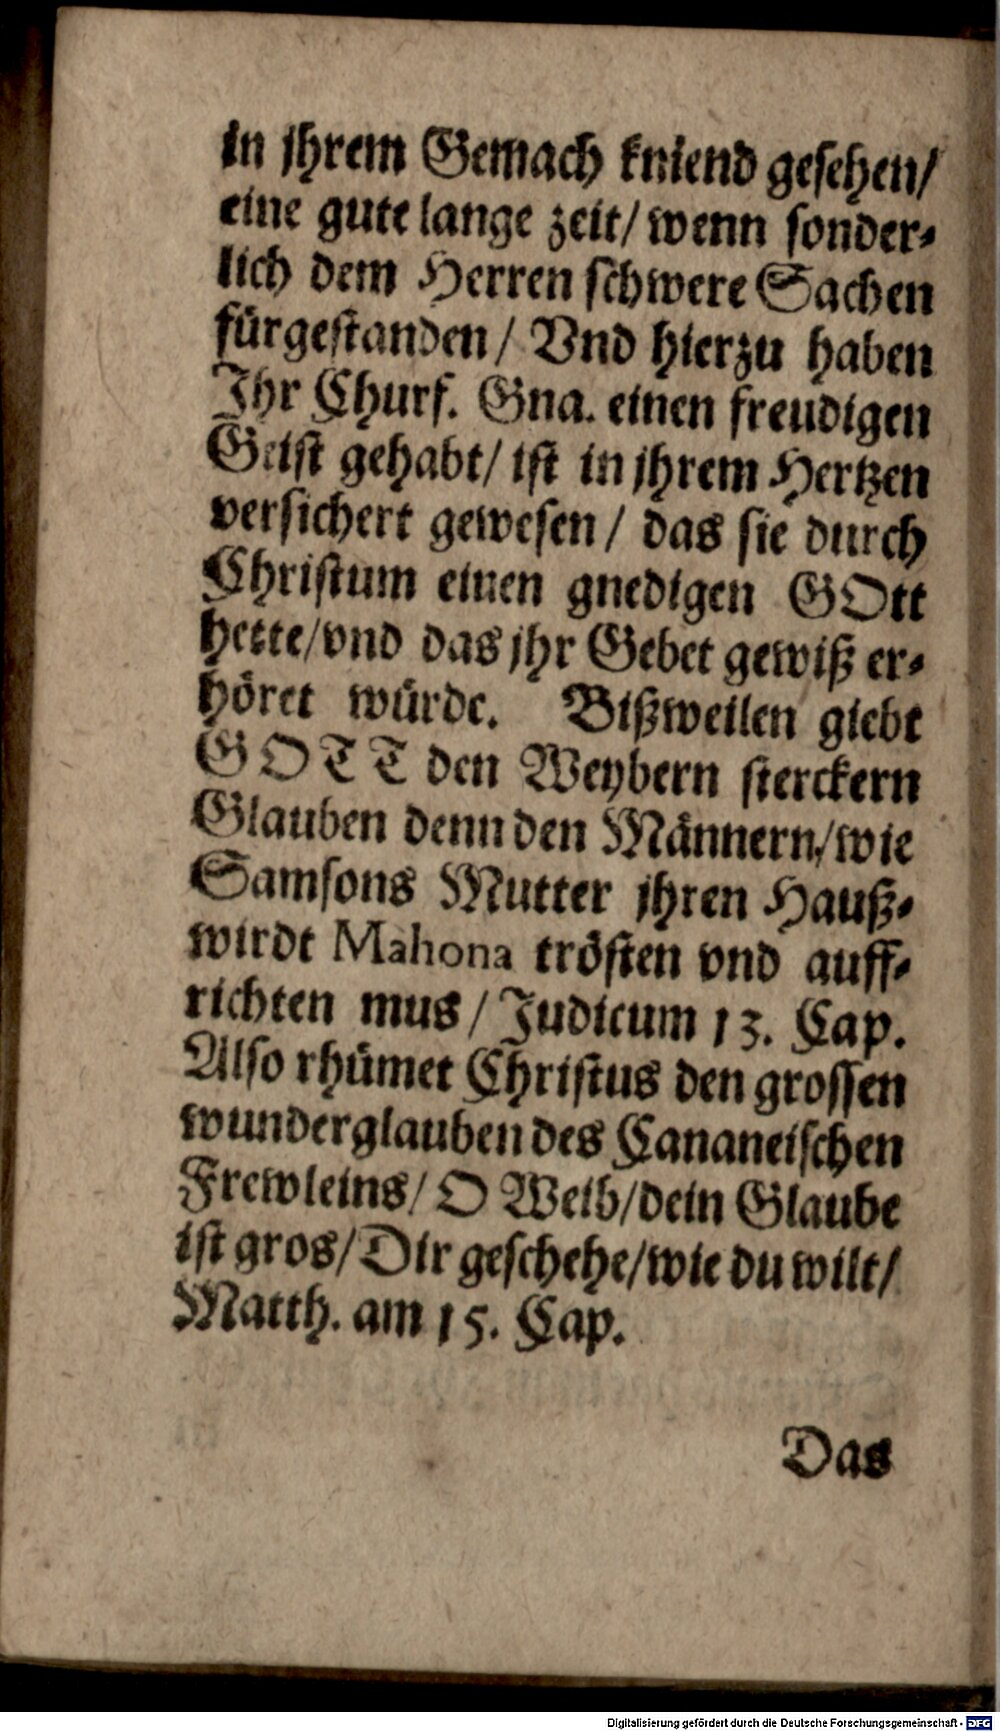 in jhrem Gemach kniend gesehen/
eine gute lange zeit/ wenn sonder-
lich dem Herren schwere Sachen
fürgestanden/ Vnd hierzu haben
Ihr Churf. Gna. einen freudigen
Geist gehabt/ ist in jhrem Hertzen
versichert gewesen/ das sie durch
Christum einen gnedigen GOtt
hette/vnd das jhr Gebet gewiß er-
höret würde. Bißweilen giebt
GOTT den Weybern sterckern
Glauben denn den Männern/wie
Samsons Mutter jhren Hauß-
wirdt Mahona trösten vnd auff-
richten mus/ Judicum 13. Cap.
Also rhümet Christus den grossen
wunderglauben des Cananeischen
Frewleins/ O Weib/dein Glaube
ist gros/Dir geschehe/wie du wilt/
Matth. am 15. Cap.
Das
Digitalisierung gefördert durch die Deutsche Forschungsgemeinschaft - DFG